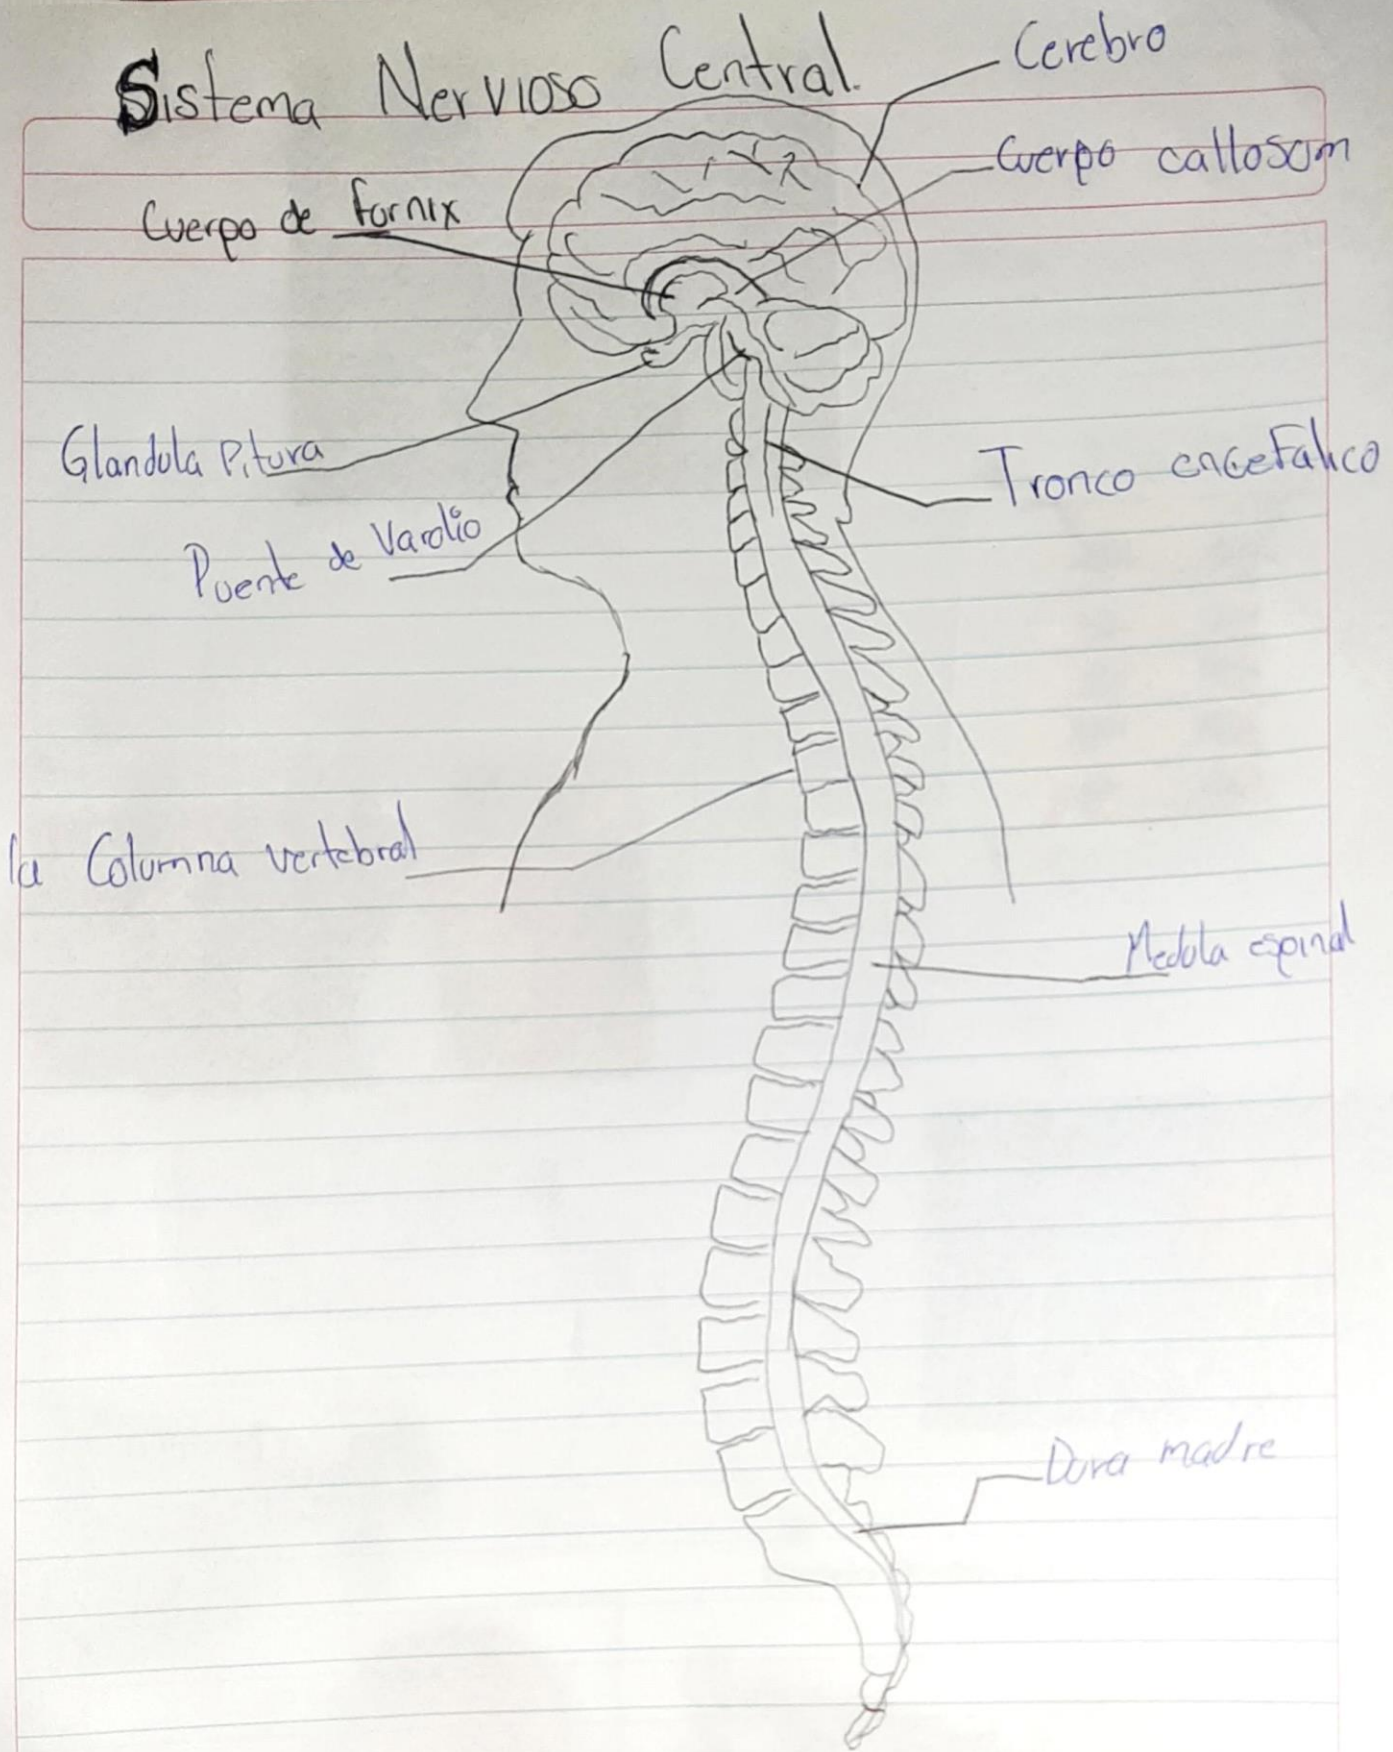 Sistema Nervioso Central.
Cerebro
Cuerpo callosom
Cuerpo de fornix
Glandula Pitura
Tronco encefalico
Puente de Varolio
la Columna vertebral
Medula espinal
Dura madre